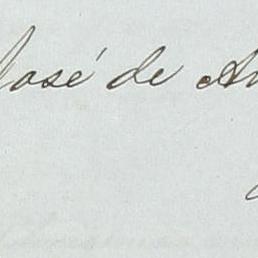 José de A